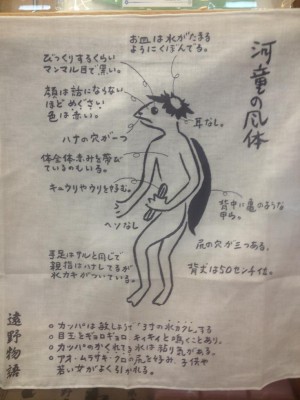 河童の風体
お皿は水がたまる
ようにくぼんでる。
びっくりするくらい
マンマル目で黒い。
顔は話にならない
ほどめぐさい
色は赤い。
耳なし。
ハナの穴が一つ
体全体赤みを帯び
ているのもいる。
キュウリやウリを好む。
背中に亀のような
甲ら。
ヘソなし
尻の穴が三つある。
手足はサルと同じで
親指はハナレてるが
水カキがついている。
背丈は50センチ位。
遠野物語
○カッパは
○目玉をギョロギョロ キィキィと鳴くことあり。
○カッパのかくれてる水は粘り気がある。
○アオ・ムラサキ・クロの尻を好み、子供や
若い女がよく引かれる。